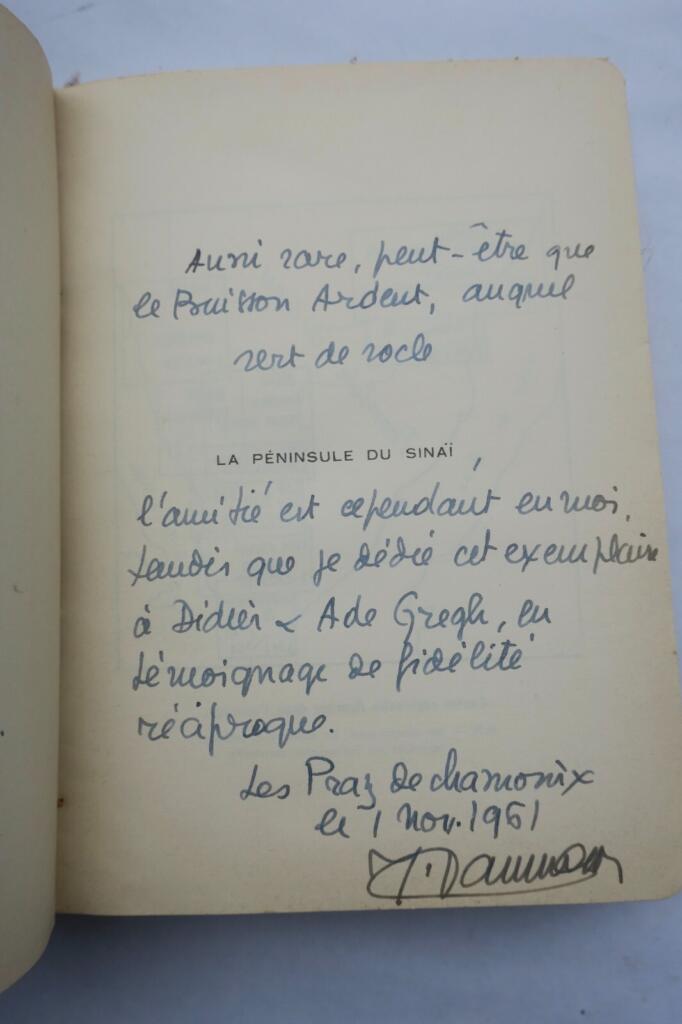 Aussi rare, peut-être que
le Buisson Ardent, auquel
sert de socle
LA PÉNINSULE DU SINAÏ
l'amitié est cependant en moi,
tandis que je dédie cet exemplaire
à Didier & Ade Gregh, en
témoignage de fidélité
réciproque.
Les Praz de chamonix
le 1 Nov. 1961